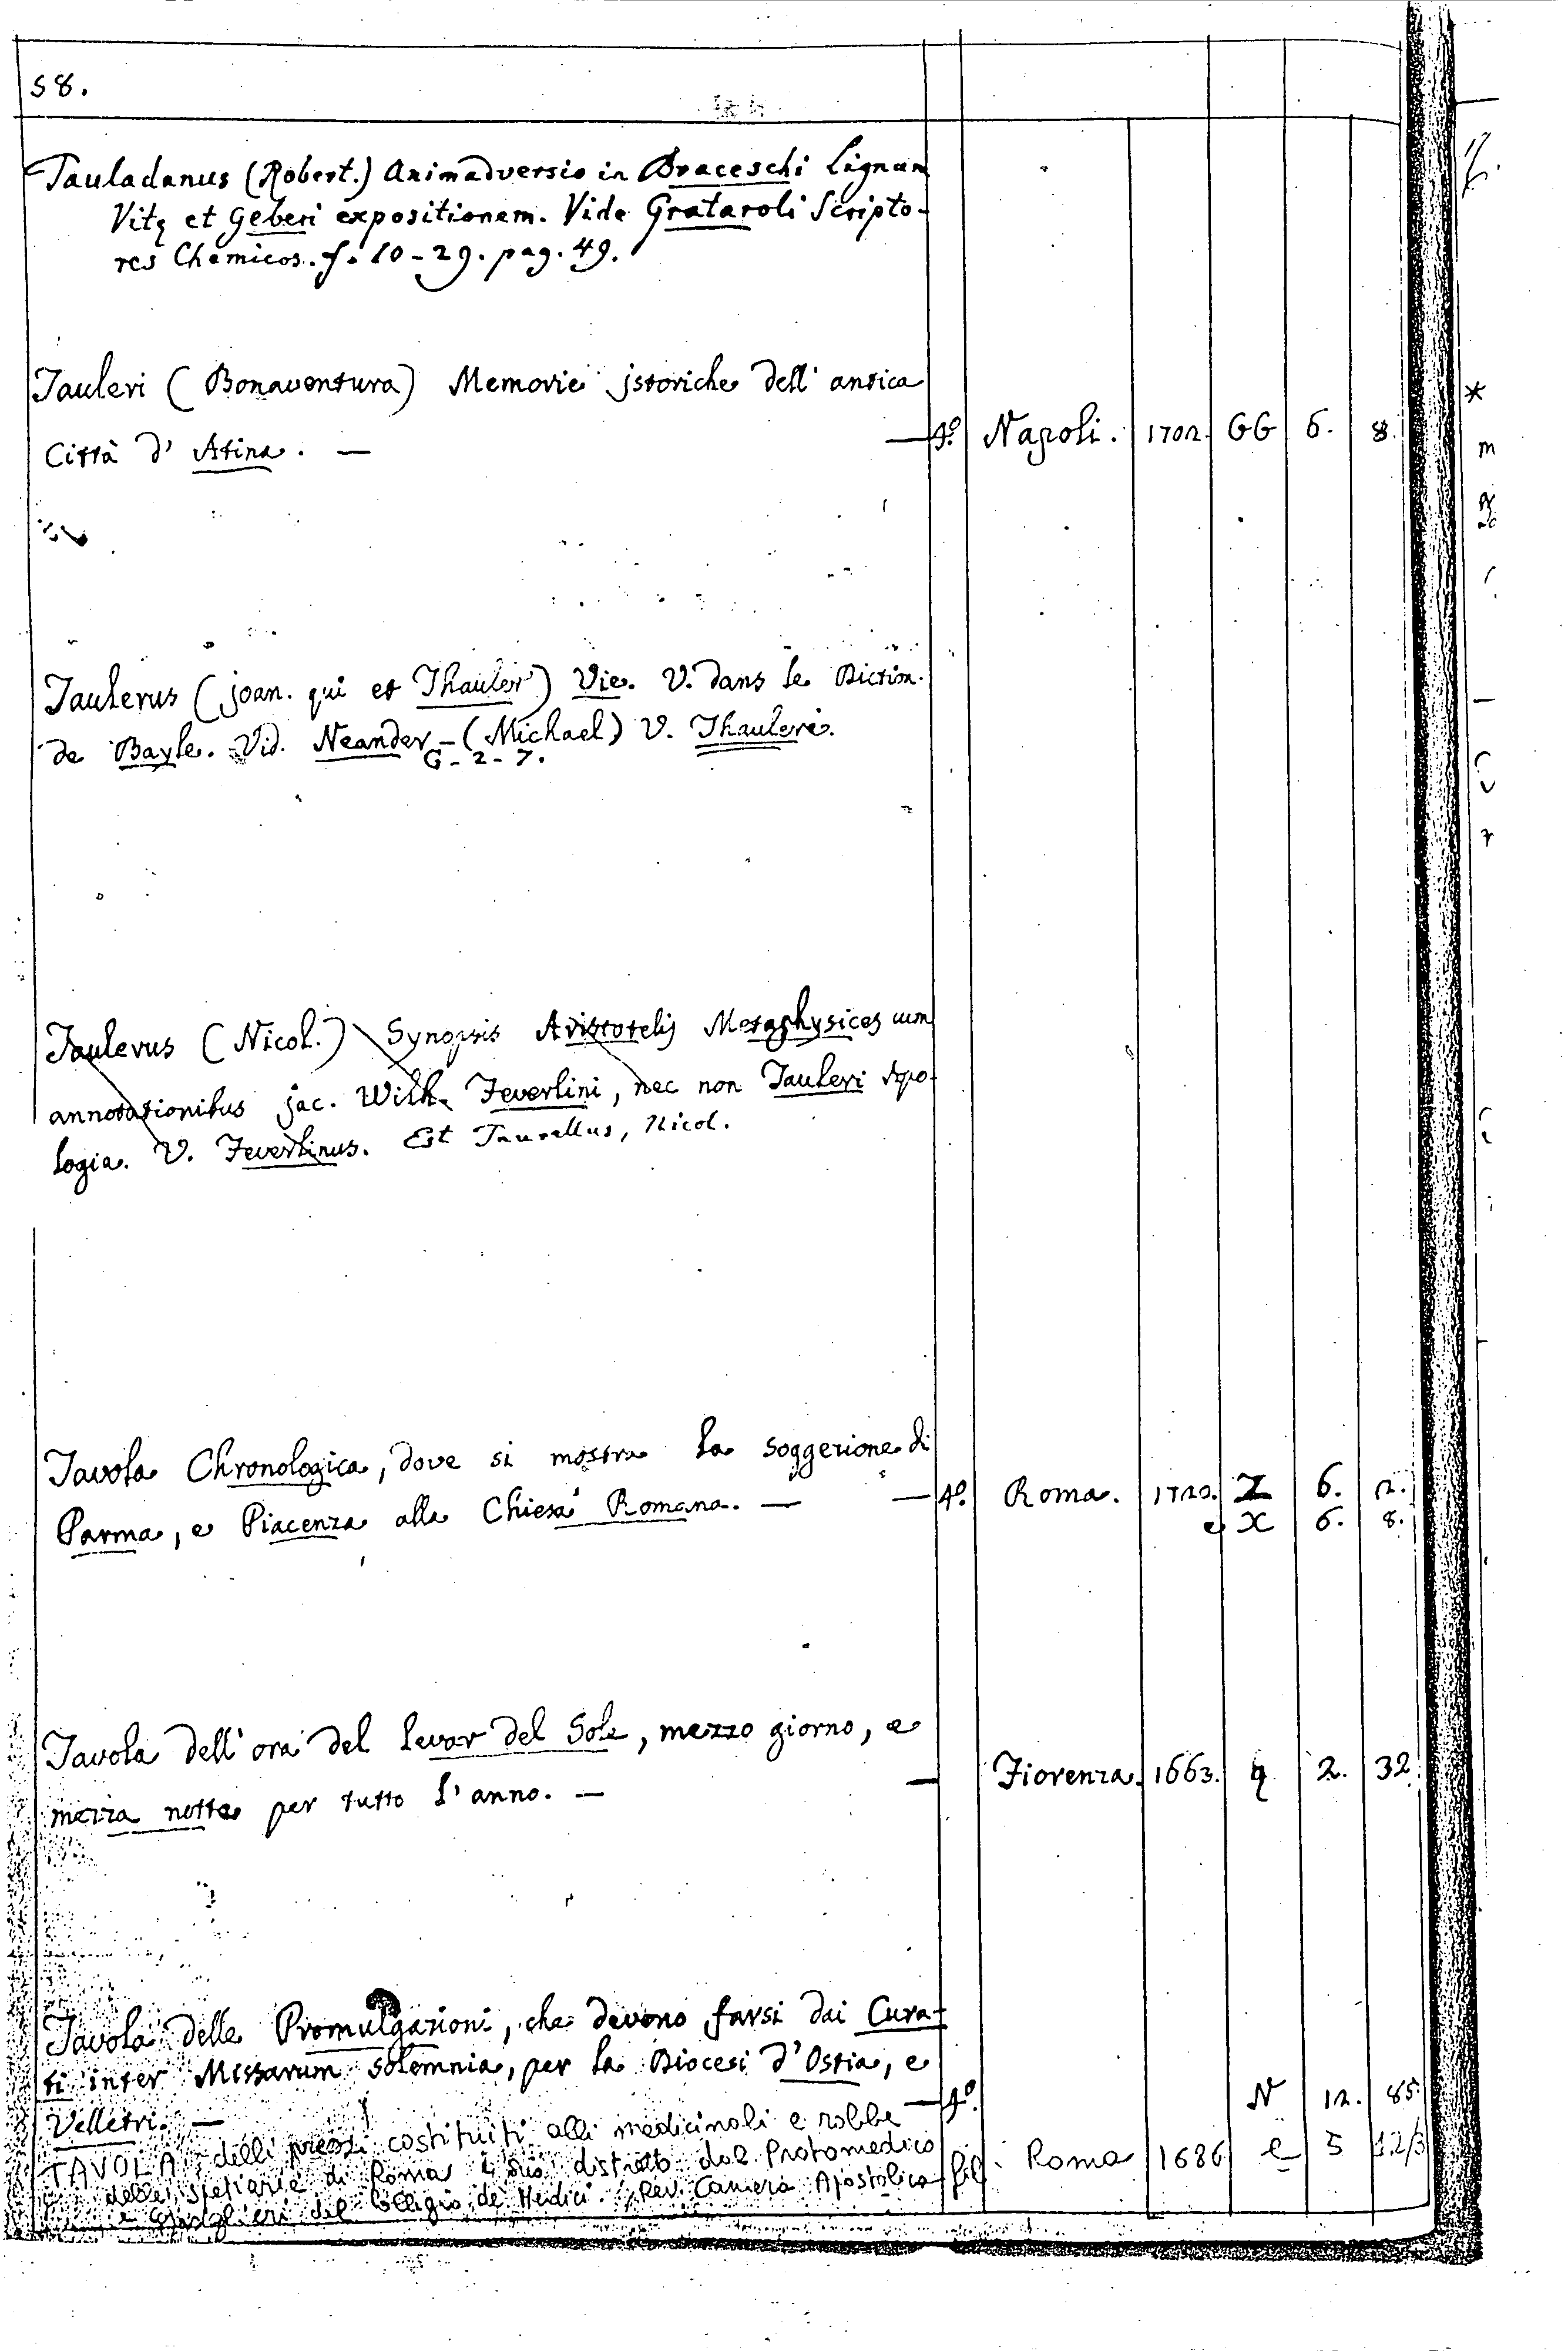 58.
Tauladanus (Robert.) Animadversio in Braceschi Lignum
Vitę et Geberi expositionem. Vide Grataroli Scripto-
res Chemicos. f. 10-29. pag. 49.
Tauleri (Bonaventura) Memorie jstoriche dell' antica
Città d' Atina. — — 4º. Napoli. 1702. GG 6. 8.
Taulerus (joan. qui et Thauler) Vie. V. dans le Diction.
de Bayle. Vid. Neander - (Michael) V. Thaulere.
G-2-7.
Taulerus (Nicol.) Synopsis Aristotelis Metaphysices cum
annotationibus jac. Wilh. Feverlini, nec non Tauleri Apo-
logia. V. Feverlinus. Est Taurellus, Nicol.
Tavola Chronologica, dove si mostra la soggezione di
Parma, e Piacenza alla Chiesa Romana. — — 4º. Roma. 1720. Z 6. 2.
e X 6. 8.
Tavola dell' ora del levar del Sole, mezzo giorno, e
mezza notte per tutto l' anno. — — Fiorenza. 1663. q 2. 32
Tavola delle Promulgazioni, che devono farsi dai Cura-
ti inter Missarum solemnia, per la Diocesi d'Ostia, e
Velletri. — — 4º. N 12. 85.
TAVOLA delli prezzi costituiti alli medicinali e robbe
delle spetiarie di Roma e suo distretto dal Protomedico
e Consiglieri del Collegio de Medici. Rev. Camera Apostolica fol. Roma 1686 e 5 12/3